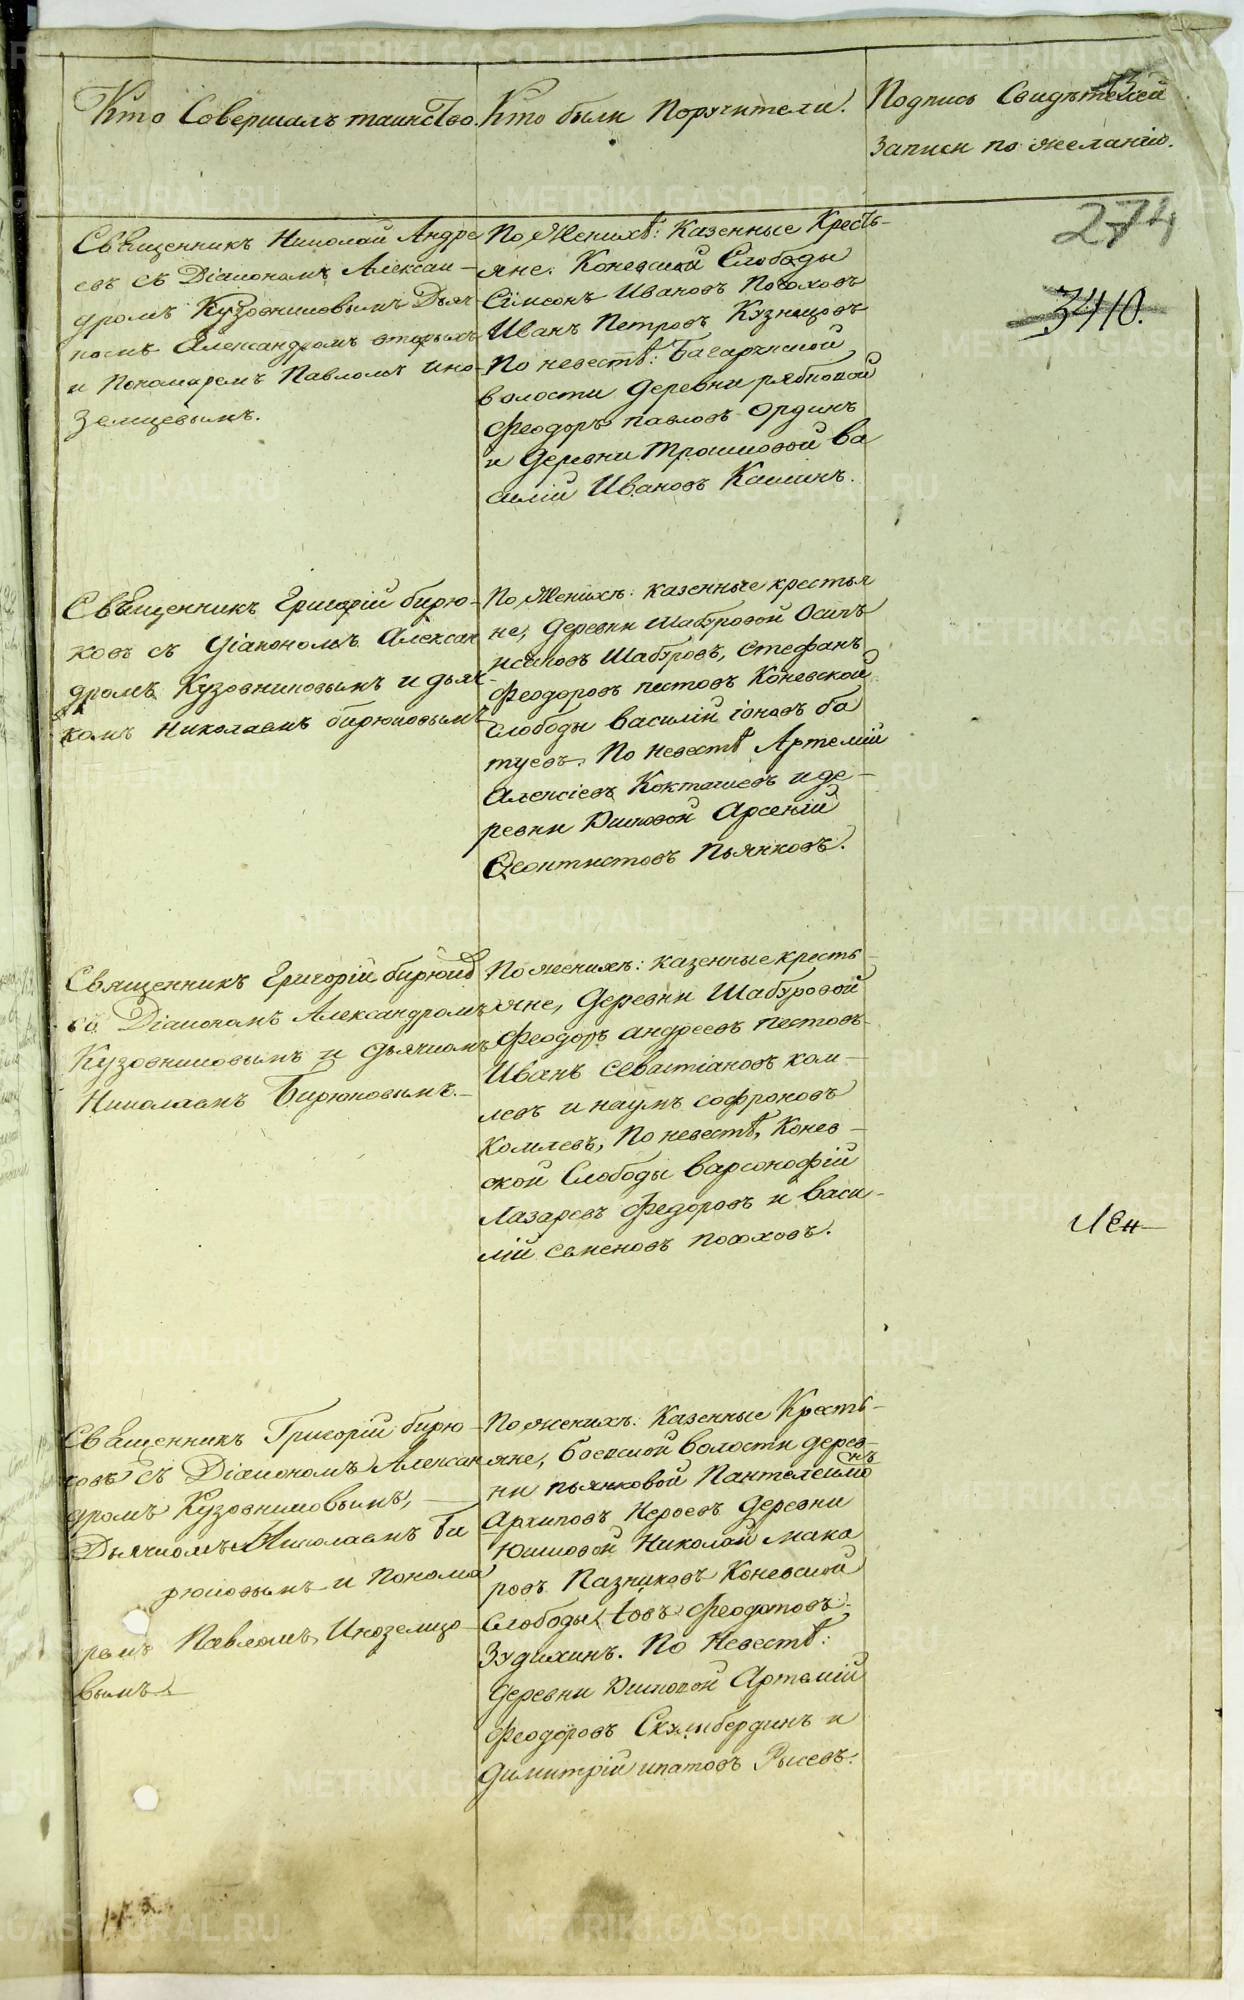 Кто Совершалъ таинство.
Кто были Поручители.
Подпись Свидѣтелей
записи по желанію.
274
3410.
Священникъ Николай Андре
евъ съ Діакономъ Алексан-
дромъ Кузовниковымъ Дьяч
комъ Александромъ вторымъ
и Пономаремъ Павломъ Ино-
земцевымъ.
По Женихѣ: Казенные Кресть-
яне. Коневской Слободы
Симеонъ Ивановъ
Иванъ Петровъ Кузнецовъ
По невестѣ: Багарякской
волости Деревни
Феодоръ павловъ
и Деревни Трошковой Ва
силій Ивановъ Кашинъ.
Священникъ Григорій бирю-
ковъ съ Діакономъ Алексан
дромъ Кузовниковымъ и дьяч-
комъ Николаемъ бирюковымъ
По Женихѣ: казенные крестья
не, Деревни Шабуровой Осипъ
Исаковъ Шабуровъ, Стефанъ
Феодоровъ пестовъ Коневской
Слободы Василій іоновъ ба
туевъ. По Невестѣ Артемій
Алексіевъ Кокташевъ и де-
ревни Юшковой Арсеній
Феоктистовъ Пьянковъ.
Священникъ Григорій бирюков
съ Діакономъ Александромъ
Кузовниковымъ и дьячкомъ
Николаемъ Бирюковымъ.-
По женихѣ: казенные кресть-
яне, Деревни Шабуровой
Феодоръ андреевъ пестовъ
Иванъ Севастіановъ ком-
левъ и наумъ софроновъ
Комлевъ, По невестѣ, Конев-
ской Слободы Варсонофій
Лазаревъ Федоровъ и Васи-
лій семеновъ
Священникъ Григорій бирю-
ковъ съ Діакономъ Алексан
дромъ Кузовниковымъ,
Дьячкомъ Николаемъ Би
рюковымъ и Понома
ремъ Павломъ Иноземцо-
вымъ
По женихѣ: Казенные Кресть-
яне, боевской волости дерев-
ни пьянковой Пантелеимонъ
Архиповъ Деревни
Юшковой Николай мака
ровъ Пазниковъ Коневской
Слободы Іовъ Феодотовъ
Зудихинъ. По Невестѣ:
Деревни Юшковой Артемій
Феодоровъ и
Димитрій ипатовъ